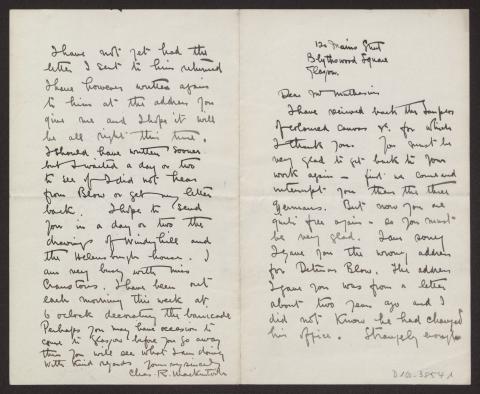 120 Mains Street
Blythswood Square
Glasgow.
Dear Mr Muthesius
I have received back the samples
of coloured canvas &c. for which
I thank you. You must be
very glad to get back to your
work again – first we come and
interrupt you then the three
Germans. But now you are
quite free again – so you must
be very glad. I am sorry
I gave you the wrong address
for Detmar Blow. The address
I gave you was from a letter
about two years ago and I
did not know he had changed
his office. Strangely enough
I have not yet had the
letter I sent to him returned
I have however written again
to him at the address you
give me and I hope it will
be all right this time.
I should have written sooner
but I waited a day or two
to see if I did not hear
from Blow or get my letter
back. I hope to send
you in a day or two the
drawings of Windyhill and
the Helensburgh house. I
am very busy with Miss
Cranstons. I have been out
each morning this week at
6 oclock decorating the barricade
Perhaps you may have occasion to
come to Glasgow before you go away
this you will see what I am doing
With kind regards Yours sincerely
Chas. R. Mackintosh